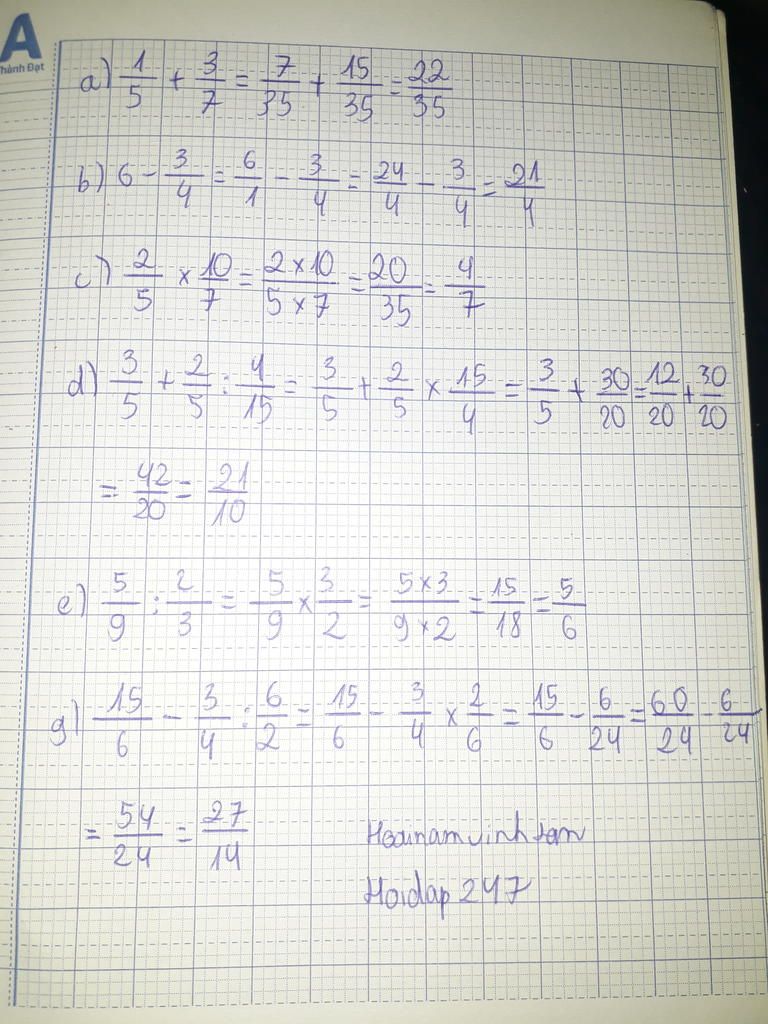 A
Thành Đạt
a) 1/5 + 3/7 = 7/35 + 15/35 = 22/35
b) 6 - 3/4 = 6/1 - 3/4 = 24/4 - 3/4 = 21/4
c) 2/5 × 10/7 = 2×10/5×7 = 20/35 = 4/7
d) 3/5 + 2/5 : 4/15 = 3/5 + 2/5 × 15/4 = 3/5 + 30/20 = 12/20 + 30/20
= 42/20 = 21/10
e) 5/9 : 2/3 = 5/9 × 3/2 = 5×3/9×2 = 15/18 = 5/6
g) 15/6 - 3/4 : 6/2 = 15/6 - 3/4 × 2/6 = 15/6 - 6/24 = 60/24 - 6/24
= 54/24 = 27/14
Hoidap 247